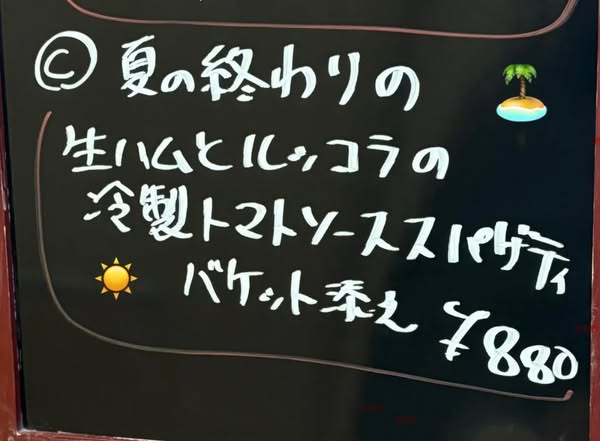 Ⓒ 夏の終わりの
生ハムとルッコラの
冷製トマトソーススパゲティ
バケット添え ¥880